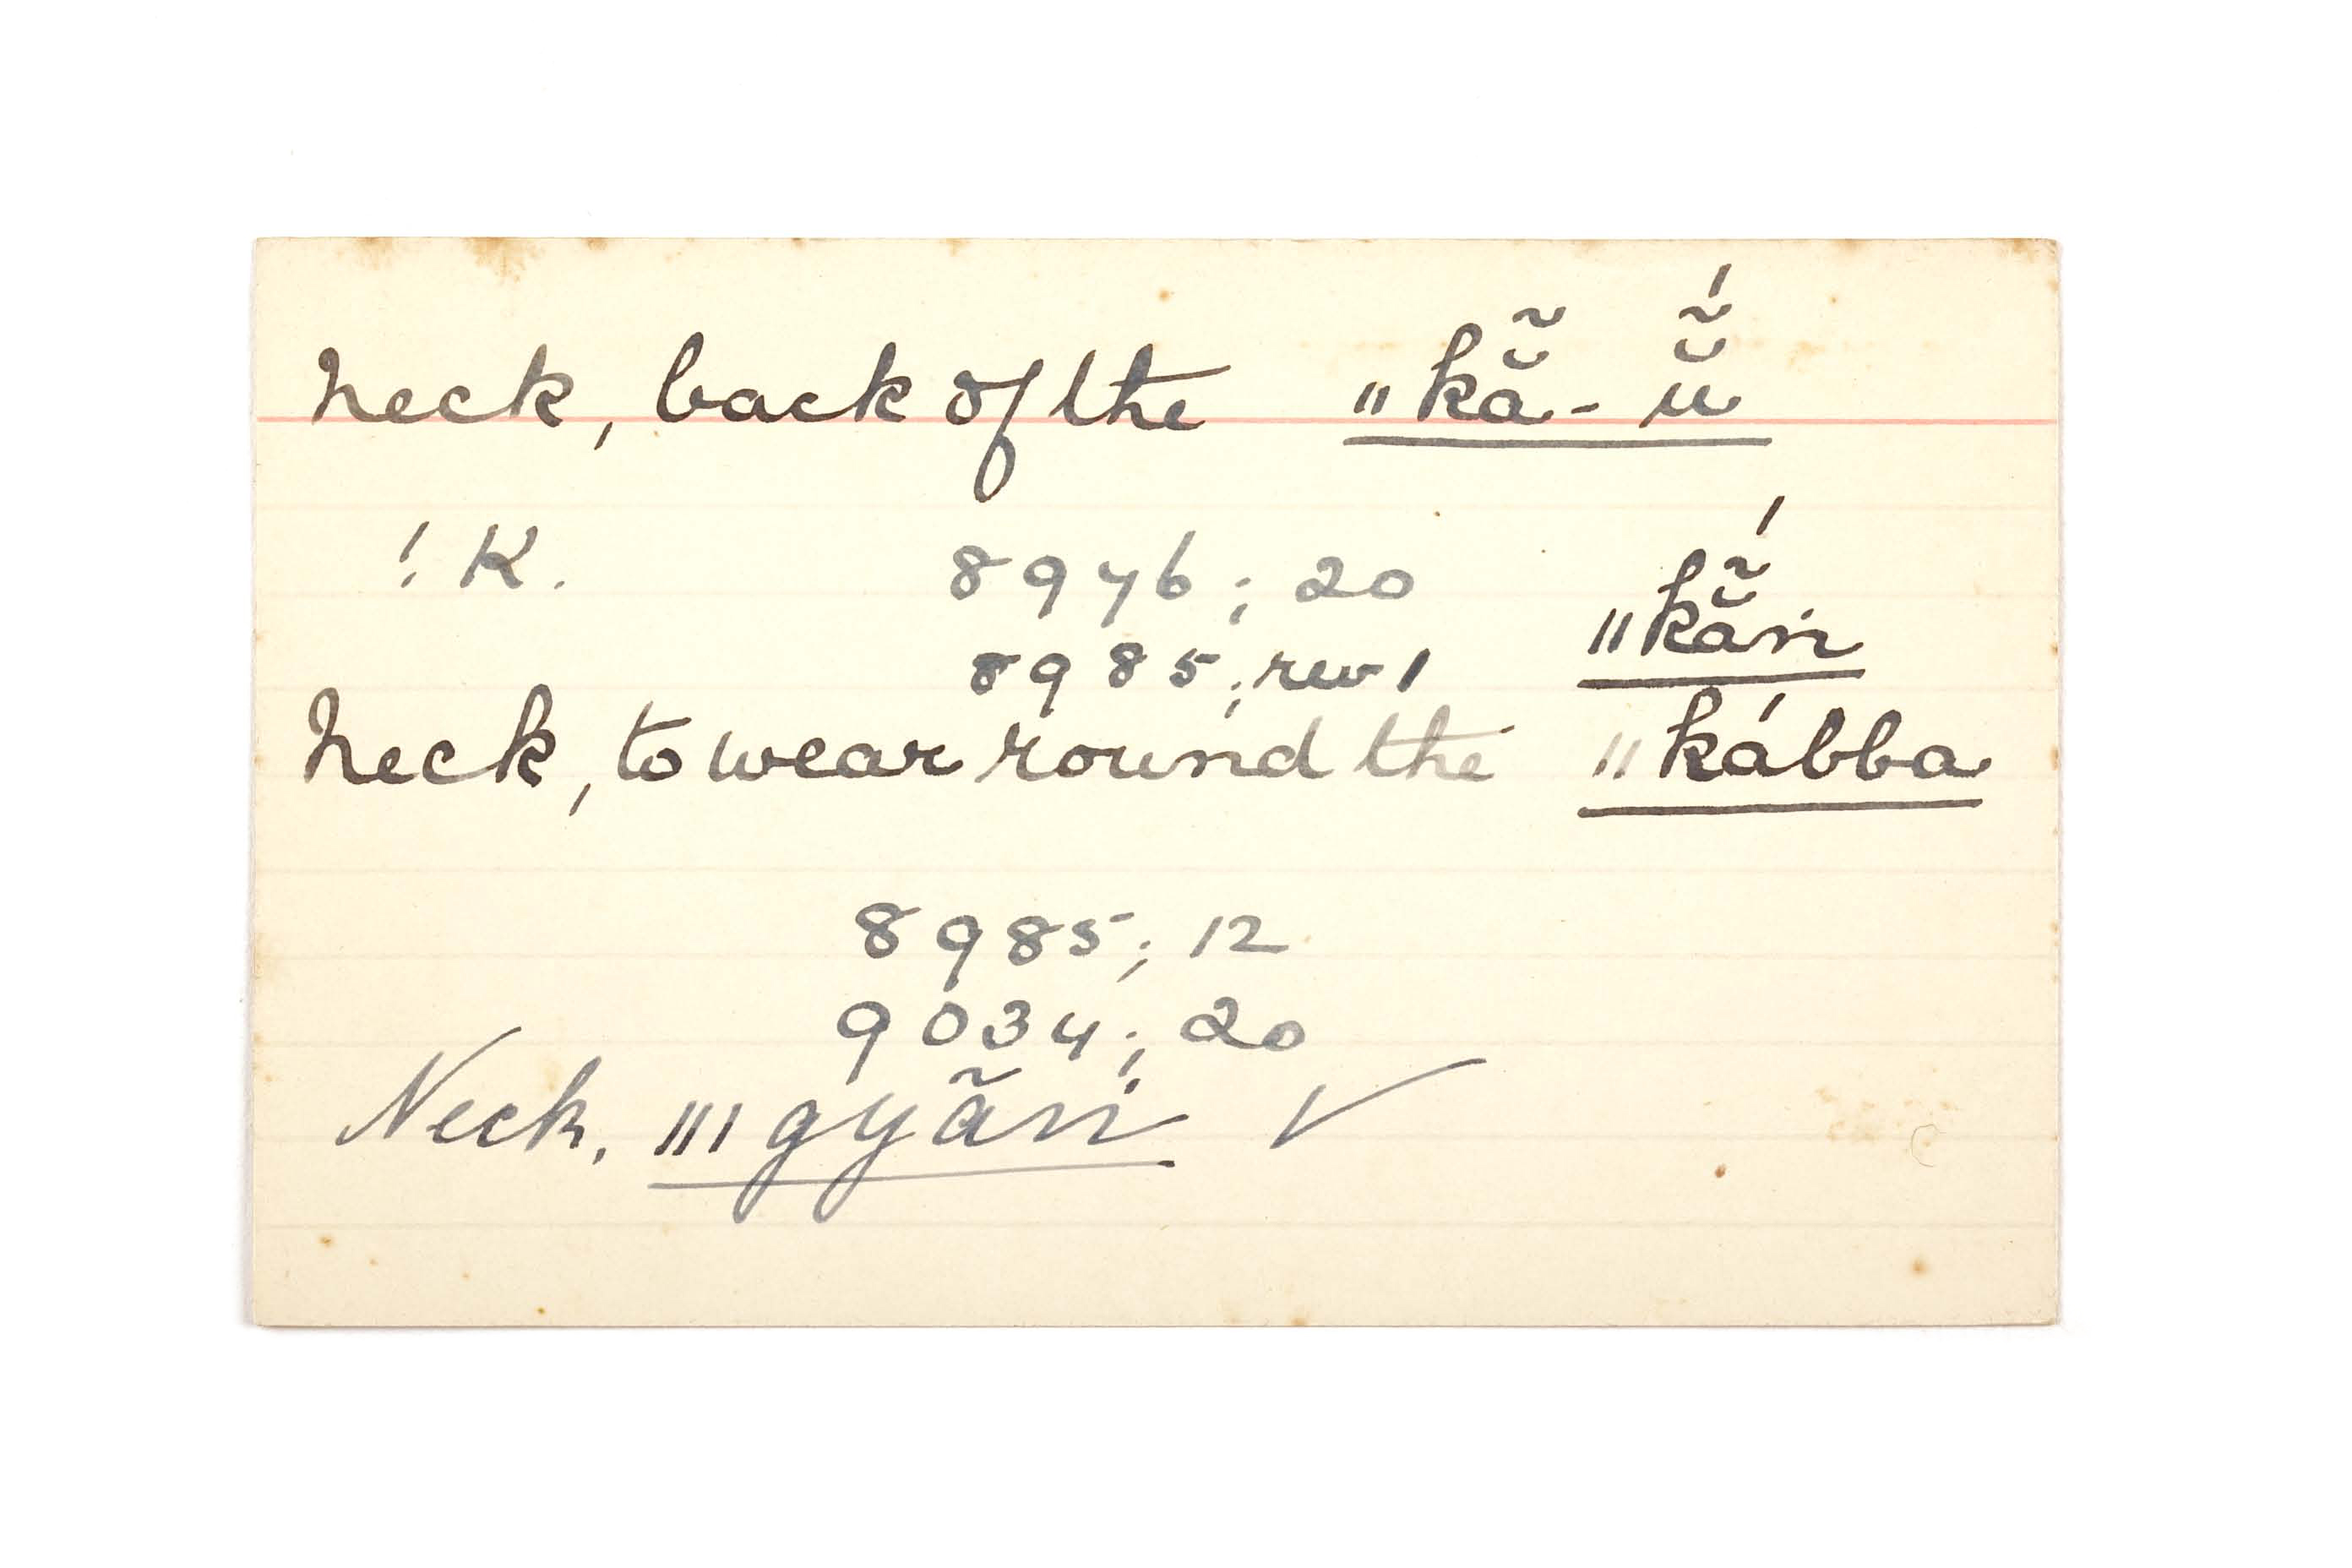 Neck, back of the ǁkẵ-ŭ̃́
!K. 8946; 20
8985; rev 1 ǁkẵ́ṅ
Neck, to wear round the ǁkábba
8985; 12
9034; 20
Neck, ⦀gyãṅ V